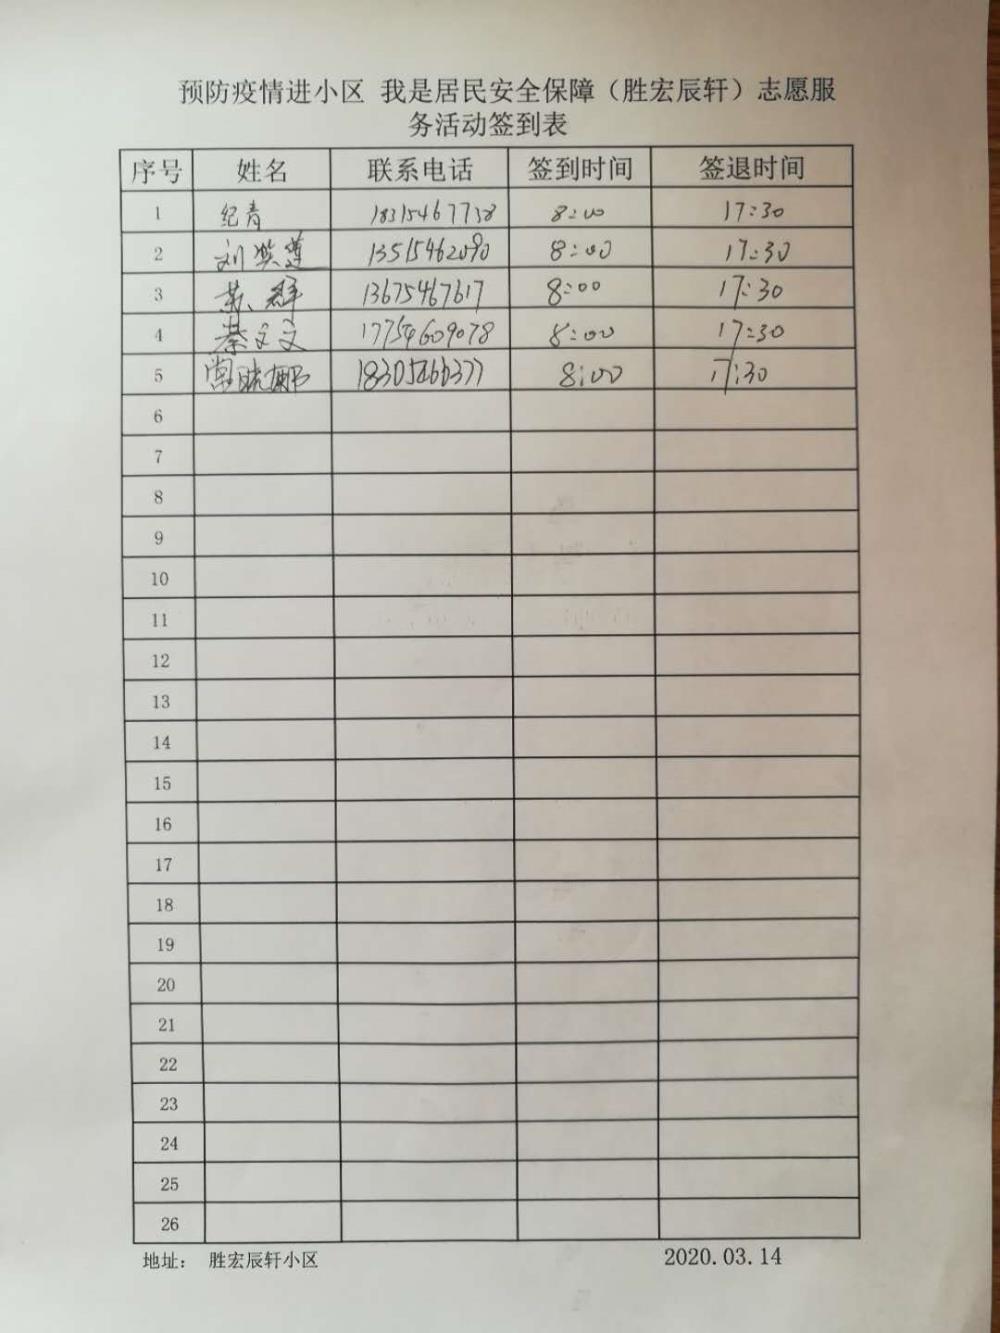 预防疫情进小区 我是居民安全保障（胜宏辰轩）志愿服
务活动签到表
序号 姓名 联系电话 签到时间 签退时间
1 纪青 18315467738 8:00 17:30
2 刘 13515462090 8:00 17:30
3 苏群 13675467617 8:00 17:30
4 蔡文文 17754609078 8:00 17:30
5 常晓娜 18305466377 8:00 17:30
6
7
8
9
10
11
12
13
14
15
16
17
18
19
20
21
22
23
24
25
26
地址： 胜宏辰轩小区 2020.03.14